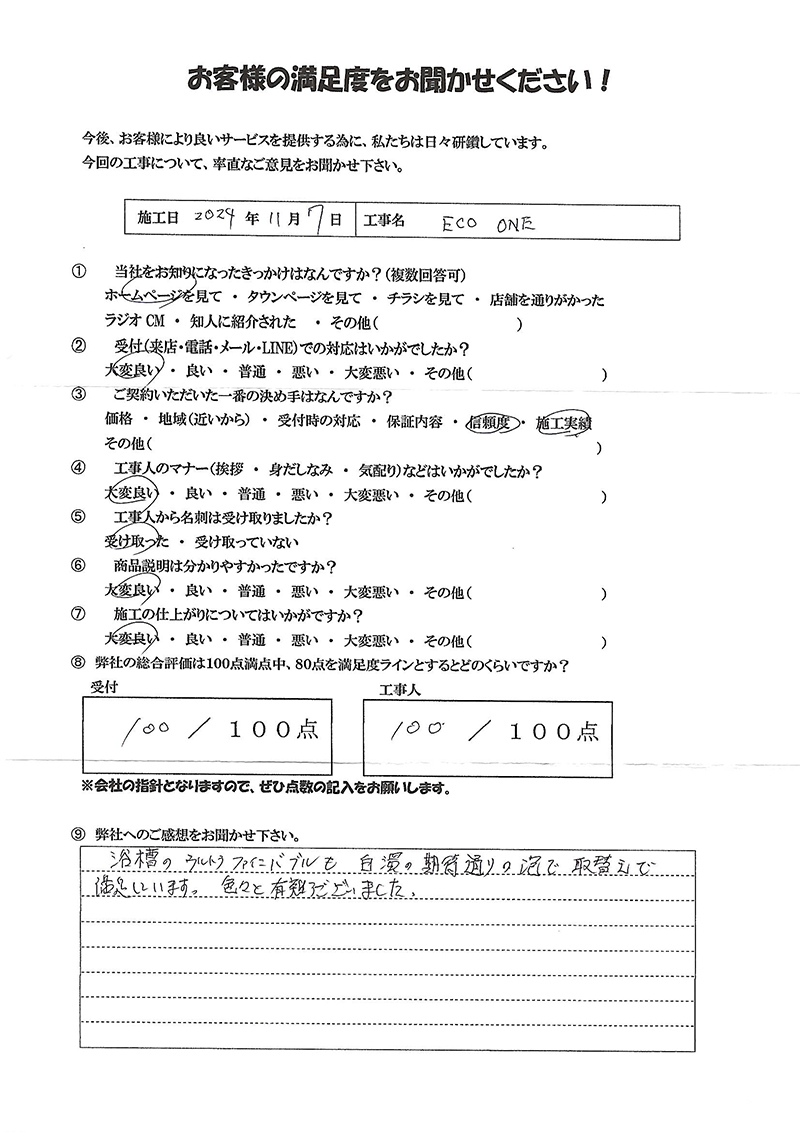 お客様の満足度をお聞かせください!
今後、お客様により良いサービスを提供する為に、私たちは日々研鑽しています。
今回の工事について、率直なご意見をお聞かせ下さい。
施工日 2024 年 11 月 7 日 工事名 ECO ONE
① 当社をお知りになったきっかけはなんですか?(複数回答可)
ホームページを見て ・ タウンページを見て ・ チラシを見て ・ 店舗を通りがかった
ラジオCM ・ 知人に紹介された ・ その他( )
② 受付(来店・電話・メール・LINE)での対応はいかがでしたか?
大変良い ・ 良い ・ 普通 ・ 悪い ・ 大変悪い ・ その他( )
③ ご契約いただいた一番の決め手はなんですか?
価格 ・ 地域(近いから) ・ 受付時の対応 ・ 保証内容 ・ 信頼度 ・ 施工実績
その他( )
④ 工事人のマナー(挨拶 ・ 身だしなみ ・ 気配り)などはいかがでしたか?
大変良い ・ 良い ・ 普通 ・ 悪い ・ 大変悪い ・ その他( )
⑤ 工事人から名刺は受け取りましたか?
受け取った ・ 受け取っていない
⑥ 商品説明は分かりやすかったですか?
大変良い ・ 良い ・ 普通 ・ 悪い ・ 大変悪い ・ その他( )
⑦ 施工の仕上がりについてはいかがですか?
大変良い ・ 良い ・ 普通 ・ 悪い ・ 大変悪い ・ その他( )
⑧ 弊社の総合評価は100点満点中、80点を満足度ラインとするとどのくらいですか?
受付 工事人
100 / 100点 100 / 100点
※会社の指針となりますので、ぜひ点数の記入をお願いします。
⑨ 弊社へのご感想をお聞かせ下さい。
浴槽の ウルトラファインバブルも 白濁の期待通りの泡で 取替えで
満足しています。 色々と有難うございました。